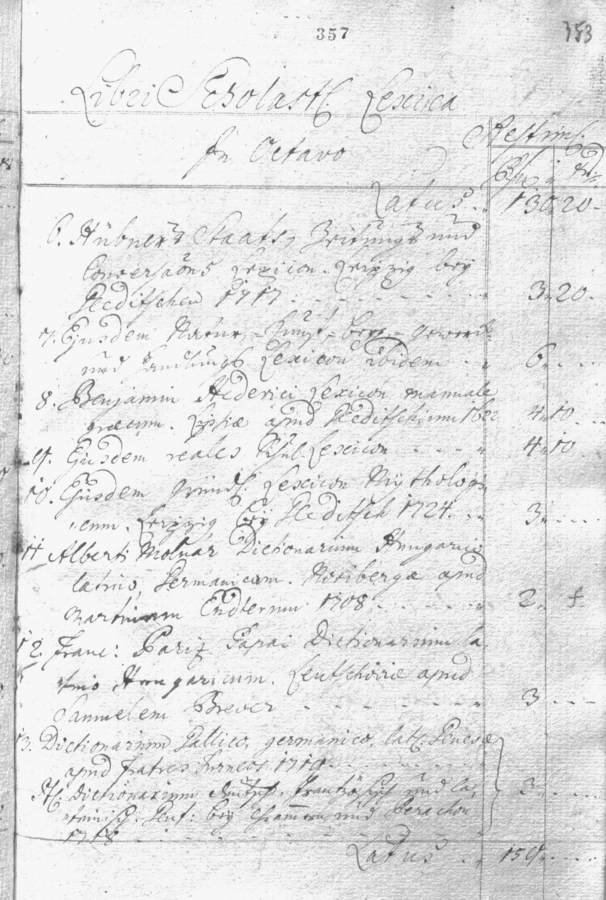 357
353
Libri Scholast. Lexica
In Octavo
Æstim.
Latus . . 130. 20.
6. Hübners Staats, Zeitungs und
Conversaõns Lexicon. Leipzig bey
Gleditschen 1717. . . . 3. 20.
7. Ejusdem Natur-Kunst-berg-gewerck
und Handlungs Lexicon ibidem . . 6. . .
8. Benjamin Hederici Lexicon manuale
græcum. Lipsiæ apud Gleditschium 1722 4. 10
9. Ejusdem reales Schul Lexicon . . . 4. 10
10. Ejusdem gründl. Lexicon Mythologi-
cum. Leipzig bey Gleditsch 1724. . . 3. . . .
11 Alberti Molnár Dictionarium Hungarico
latino, Germanicum. Noribergæ apud
Martinum Endterum 1708. . . . 2.
12. Franc: Pariz Papai Dictionarium la-
tino Hungaricum. Leutschoviæ apud
Samuelem Brever . . . . 3 . . .
13. Dictionarium Gallico, germanico, lat. Genevæ
apud fratres 1710
It. Dictionarium Deutsch. Frantzösisch und la-
teinisch. Genf: bey und Perachon
1718 . . . 3. . . .
Latus . . 159. . . .